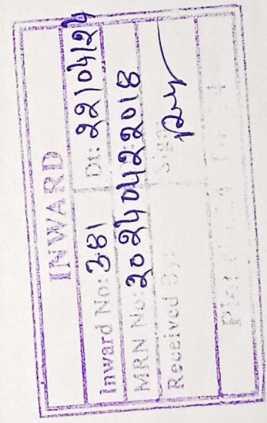 INWARD
Inward No: 381 Dt: 22/04/24
MRN No: 20240422018
Received By: Sign